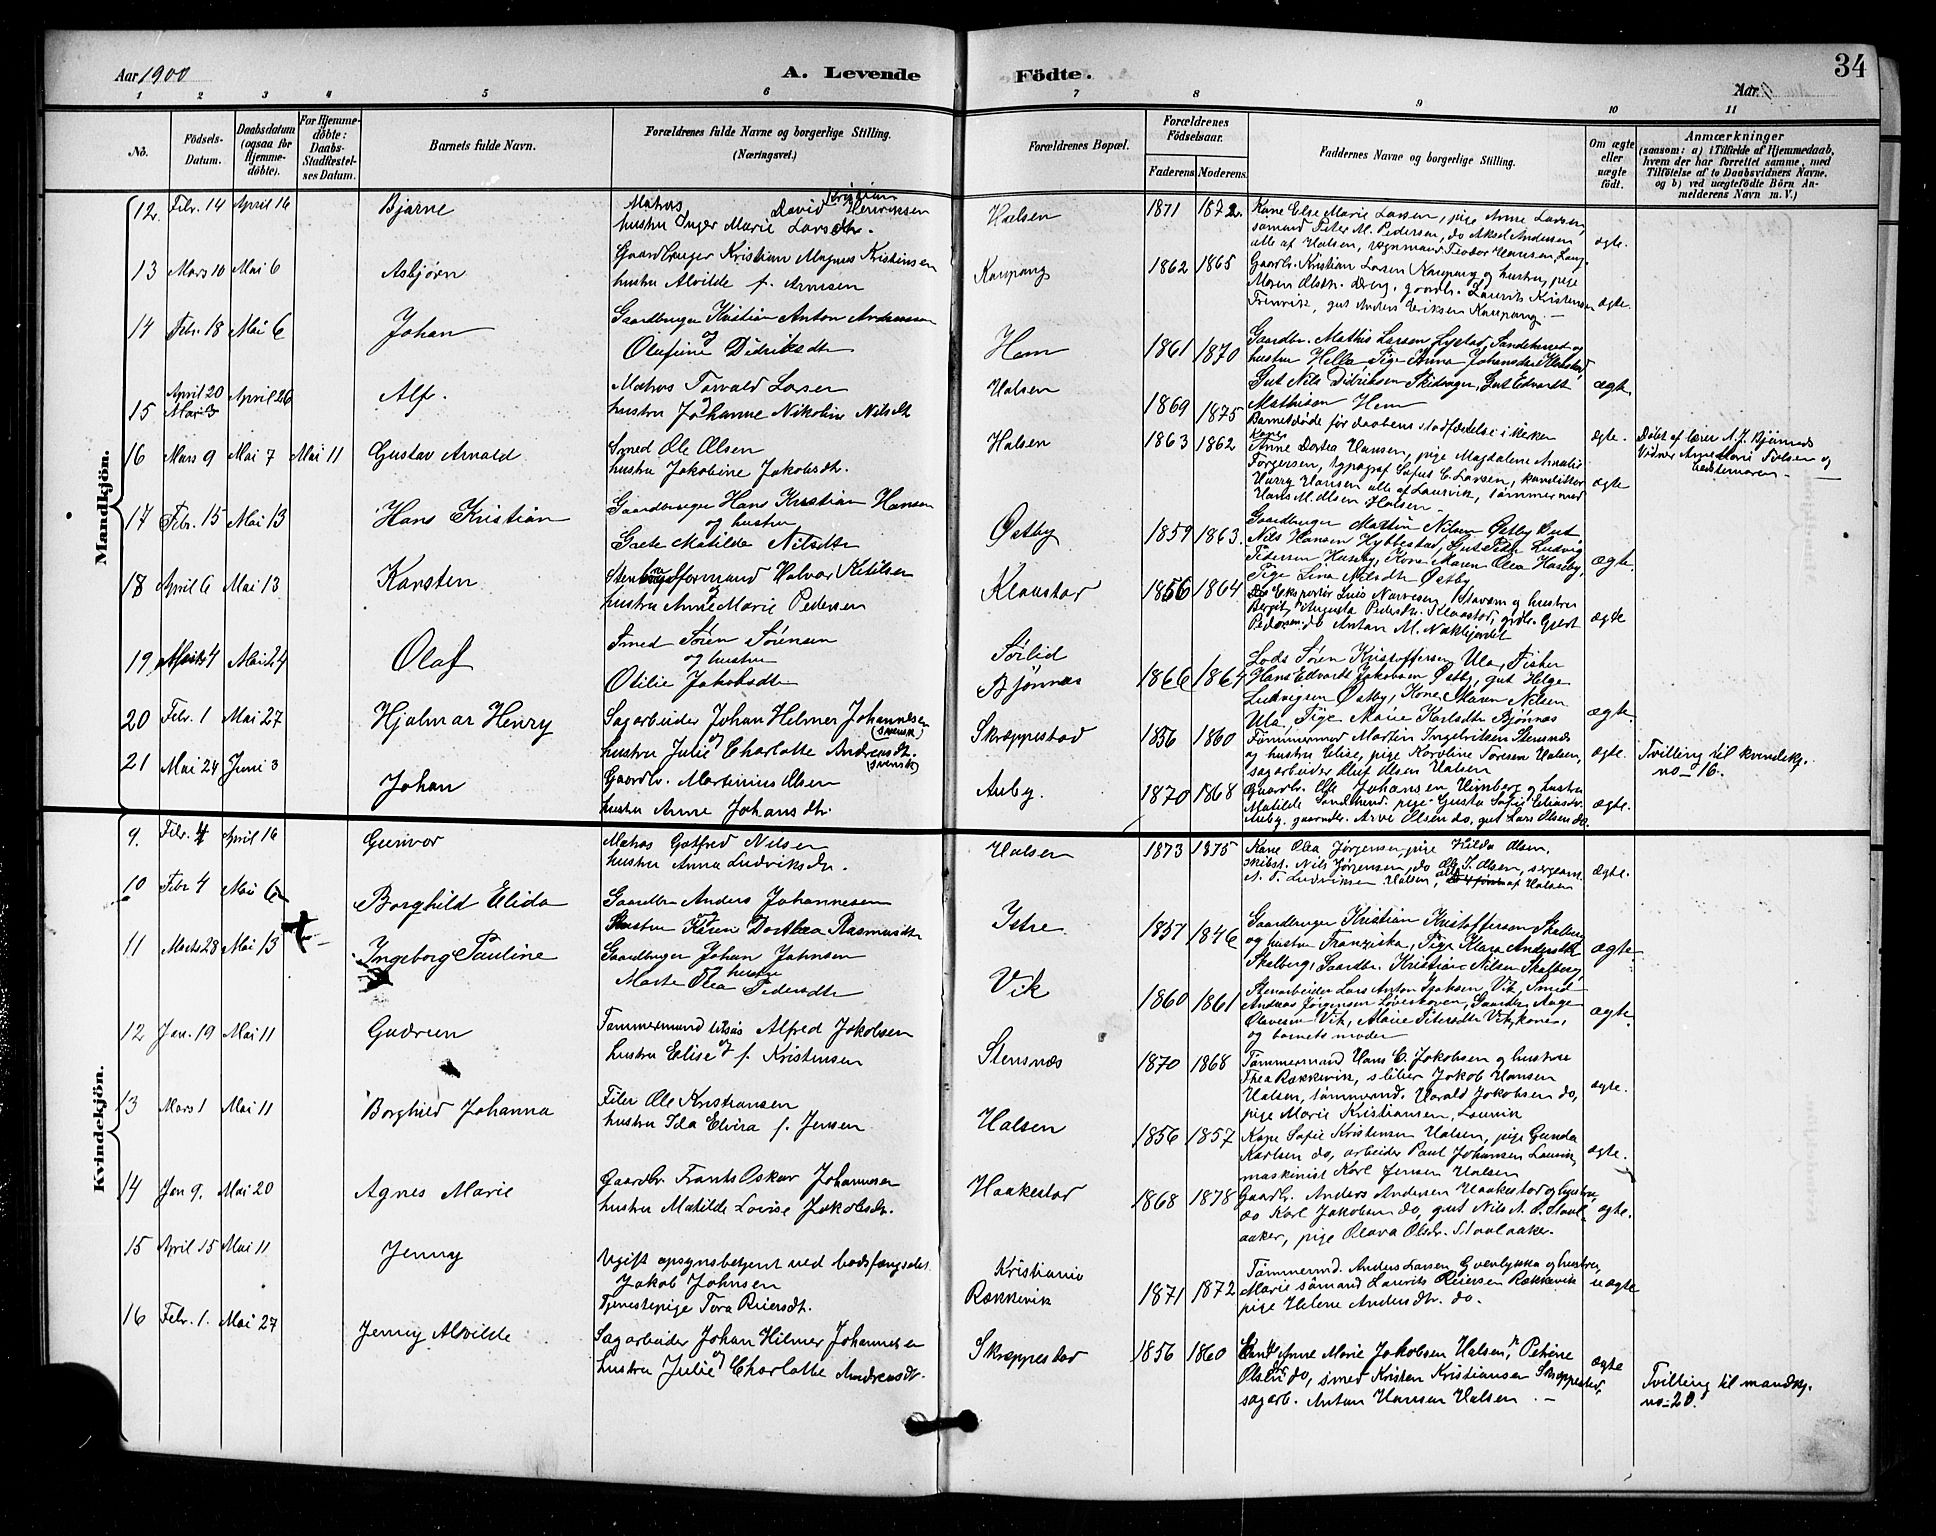 Aar 1900
A. Levende Födte.
34
Aar
1 2 3 4 5 6 7 8 9 10 11
No.
Födsels-Datum.
Daabsdatum (ogsaa for Hjemme-døbte).
For Hjemme-døbte: Daabs-Stadfæstel-ses Datum.
Barnets fulde Navn.
Forældrenes fulde Navne og borgerlige Stilling. (Næringsvei.)
Forældrenes Bopæl.
Forældrenes Födselsaar.
Faderens. Moderens.
Faddernes Navne og borgerlige Stilling.
Om ægte eller uægte født.
Anmærkninger
(saasom: a) i Tilfælde af Hjemmedaab, hvem der har forrettet samme, med Tilföielse af to Daabsvidners Navne, og b) ved uægtefödte Börn An-melderens Navn m. V.)
Mandkjön.
12. Febr. 14 April 16 Bjarne
Matros David Kristian Henriksen
hustru Inger Marie Larsdtr.
Halsen 1871 1872
Kone Else Marie Larsen, pige Anne Larsen,
sømand Peter M. Pedersen, do Aksel Andersen
alle af Halsen, vognmand Teodor Hansen, Laug-
ægte.
13 Mars 10 Mai 6 Asbjørn
Gaardbruger Kristian Magnus Kristensen
hustru Alvilde f. Arnesen
Kaupang 1862 1865
Gaardbr. Kristian Larsen Kaupang og hustru, pige
Maren Olsdtr. Dreng, gaardbr. Laurits Kristensen
gut Anders Eriksen Kaupang. —
ægte.
14 Febr. 18 Mai 6 Johan
Gaardbruger Kristian Anton Andersen
og
Olufine Didriksdtr
Hem 1861 1870
Gaardbr. Mathis Larsen Lystad, Sandeherred og
hustru Hella, Pige Anna Johansdtr Haakestad,
Gut Nils Didriksen Skidvager, Gut Edvardt
Mathisen Hem
ægte
15 April 20 Mai 3 April 26 Alf.
Matros Torvald Larsen
hustru Johanne Nikoline Nilsdtr
Halsen 1869 1875
Barnet døde før daabens stadfæstelse i kirken
ægte.
16 Mars 9 Mai 7 Mai 11 Gustav Arnold
Smed Ole Olsen
hustru Jakobine Jakobsdtr.
Halsen 1863 1862
Kone
Anne Dortea Hansen, pige Magdalene Amalie
Torgersen, typograf Sofus C. Larsen, kandidat
Harry Hansen alle af Laurvik, tømmermand
Hans M. Olsen Halsen —
ægte
Døbt af lærer A. J. Bjønnes
Vidner Anne Marie Tolsen og
bedstemoren —
17 Febr. 15 Mai 13 Hans Kristian
Gaardbruger Hans Kristian Hansen
og hustru
Grete Matilde Nilsdtr
Østby 1859 1863
Gaardbruger Martin Nilsen Østby Gut
Nils Hansen Hybbestad, Gut Peder Ludvig
Pedersen Huseby, Kone Maren Olea Haseby,
Pige Lina Nilsdtr Østby
ægte.
18 April 6 Mai 13 Karsten
Formand Halvor Ketilsen
og
hustru Anne Marie Pedersen
Klaastad 1856 1864
Eksportør Luis Narvesen, Stavern og hustru
Bergit, Augusta Pedersdtr. Klaastad, grdbr. Gjert
Pedersen do Anton M. Nakkjerdet
ægte
19 April 4 Mai 24 Olaf
Smed Søren Sørensen
og hustru
Otilie Jakobsdtr
Sørlid
Bjønnes 1866 1864
Lods Søren Kristoffersen Ula, Fisker
Hans Edvardt Jakobsen Østby, gut Helge
Ludvigsen Østby, Kone Maren Nilsen
Ula, Pige Marie Karlsdtr Bjønnes
ægte.
20 Febr. 1 Mai 27 Hjalmar Henry
Sagarbeider Johan Helmer Johannesen
(svensk)
og
hustru Julie Charlotte Andreasdtr.
(svensk)
Skræppestad 1856 1860
Tømmermd Martin Ingebritsen Stensnæs
og hustru Elise, pige Karoline Toresen Halsen,
sagarbeider Oluf Olsen Halsen
ægte.
Tvilling til kvindekj.
no 16.
21 Mai 24 Juni 3 Johan
Gaardbr. Martinius Olsen
hustru Anne Johansdtr.
Auby. 1870 1868
Gaardbr. Ole Johansen Himberg og hustru
Matilde Sandeherred. pige Gusta Sofie Eliasdtr.
Auby. gaardbr. Arve Olsen do, gut Lars Olsen do.
ægte.
Kvindekjön.
9. Febr. 4 April 16 Gunvor
Matros Gotfred Nilsen
hustru Anna Ludviksdr.
Halsen 1873 1875
Kone Olea Jørgensen, pige Hilda Olsen,
skibst. Nils Jørgensen, do Ole J. Olsen, sergeant
A. T. Ludviksen Halsen, alle af Halsen
ægte.
10 Febr. 4 Mai 6 Borghild Elida
Gaardbr Anders Johannesen
Hustru Karen Dorthea Rasmusdtr
Istre 1857 1846
Gaardbruger Kristian Kristoffersen Skalberg
og hustru Franziska, Pige Klara Andersdtr
Skalberg, Gaardbr. Kristian Nilsen Skalberg,
ægte
11 Marts 28 Mai 13 Ingeborg Pauline
Gaardbruger Johan Johnsen
hustru
Marte Olea Pedersdtr
Vik 1860 1861
Stenarbeider Lars Anton Isaksen, Vik, Smed
Andreas Jørgensen Løveskoven, Gaardbr. Aage
Olavesen Vik, Marie Petersdtr Vik, kone,
og barnets moder
ægte.
12 Jan. 19 Mai 11 Gudrun
Tømmermand Alfred Jakobsen
og
hustru Elise f. Kristensen
Stensnæs 1870 1868
Tømmermand Hans C. Jakobsen og hustru
Thea Rækkevik, sliber Jakob Hansen
Halsen, tømmermd. Harald Jakobsen do,
pige Marie Kristiansen, Laurvik
ægte.
13 Mars 1 Mai 11 Borghild Johanna
Filer Ole Kristiansen
hustru Ida Elvira f. Jensen
Halsen 1856 1857
Kone Sofie Kristensen Halsen, pige Gunda
Karlsen do, arbeider Paul Johansen Laurvik,
maskinist Karl Jensen Halsen
ægte.
14 Jan 9. Mai 20 Agnes Marie
Gaardbr. Frants Oskar Johannesen
hustru Matilde Lovise Jakobsdr.
Haakestad 1868 1878
Gaardbr. Anders Andersen Haakestad og hustru,
do Karl Jakobsen do, gut Nils A. O. Staal-
aaker, pige Olava Olsdr. Staalaaker.
ægte.
15 April 15 Mai 11 Jenny
Ugift opsynsbetjent ved bodsfængslet
Jakob Johnsen
Tjenestepige Tora Reiersdtr.
Kristiania
Rækkevik 1871 1872
Tømmermd. Anders Larsen Grønlykka og hustru
Marie sømand Laurits Reiersen Rækkevik
pige Helene Andersdtr. do.
uægte
16 Febr. 1. Mai 27 Jenny Alvilde
Sagarbeider Johan Hilmer Johannesen
og
hustru Julie Charlotte Andreasdtr.
Skræppestad 1856 1860
Anne Marie Jakobsen Halsen, Petrine
Olsen do, smed Kristen Kristiansen Skræppestad,
sagarb. Anton Hansen Halsen. —
ægte
Tvilling til mandkj.
no 20.